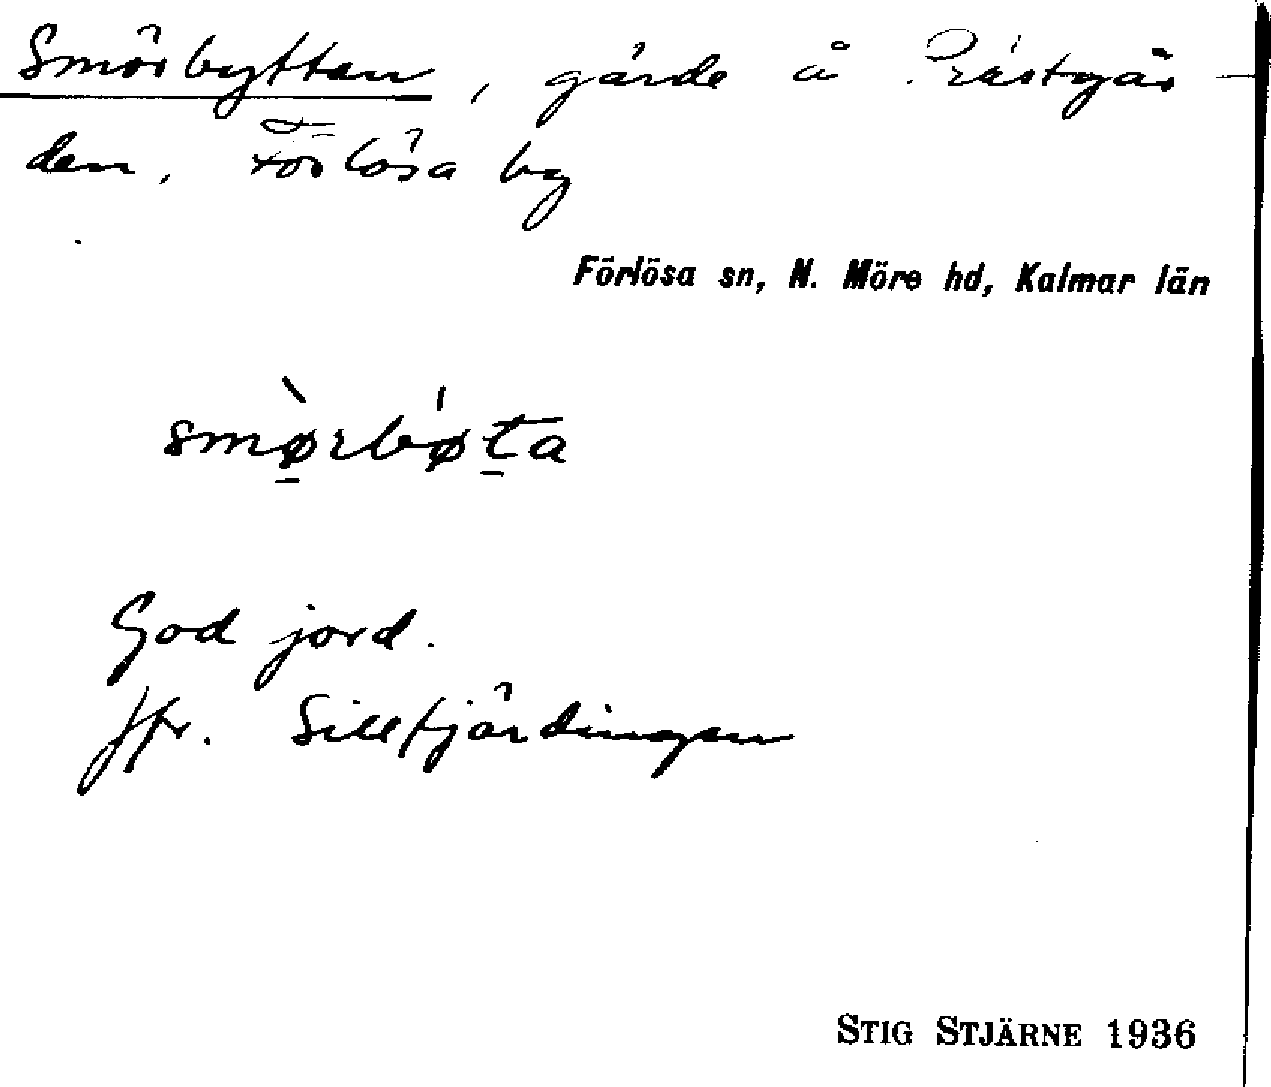 Smörbyttan, gärde å Prästgår-
den, Förlösa by
Förlösa sn, N. Möre hd, Kalmar län
smø̠̀rbǿt̠a
God jord.
Jfr. Sillfjärdingen
STIG STJÄRNE 1936